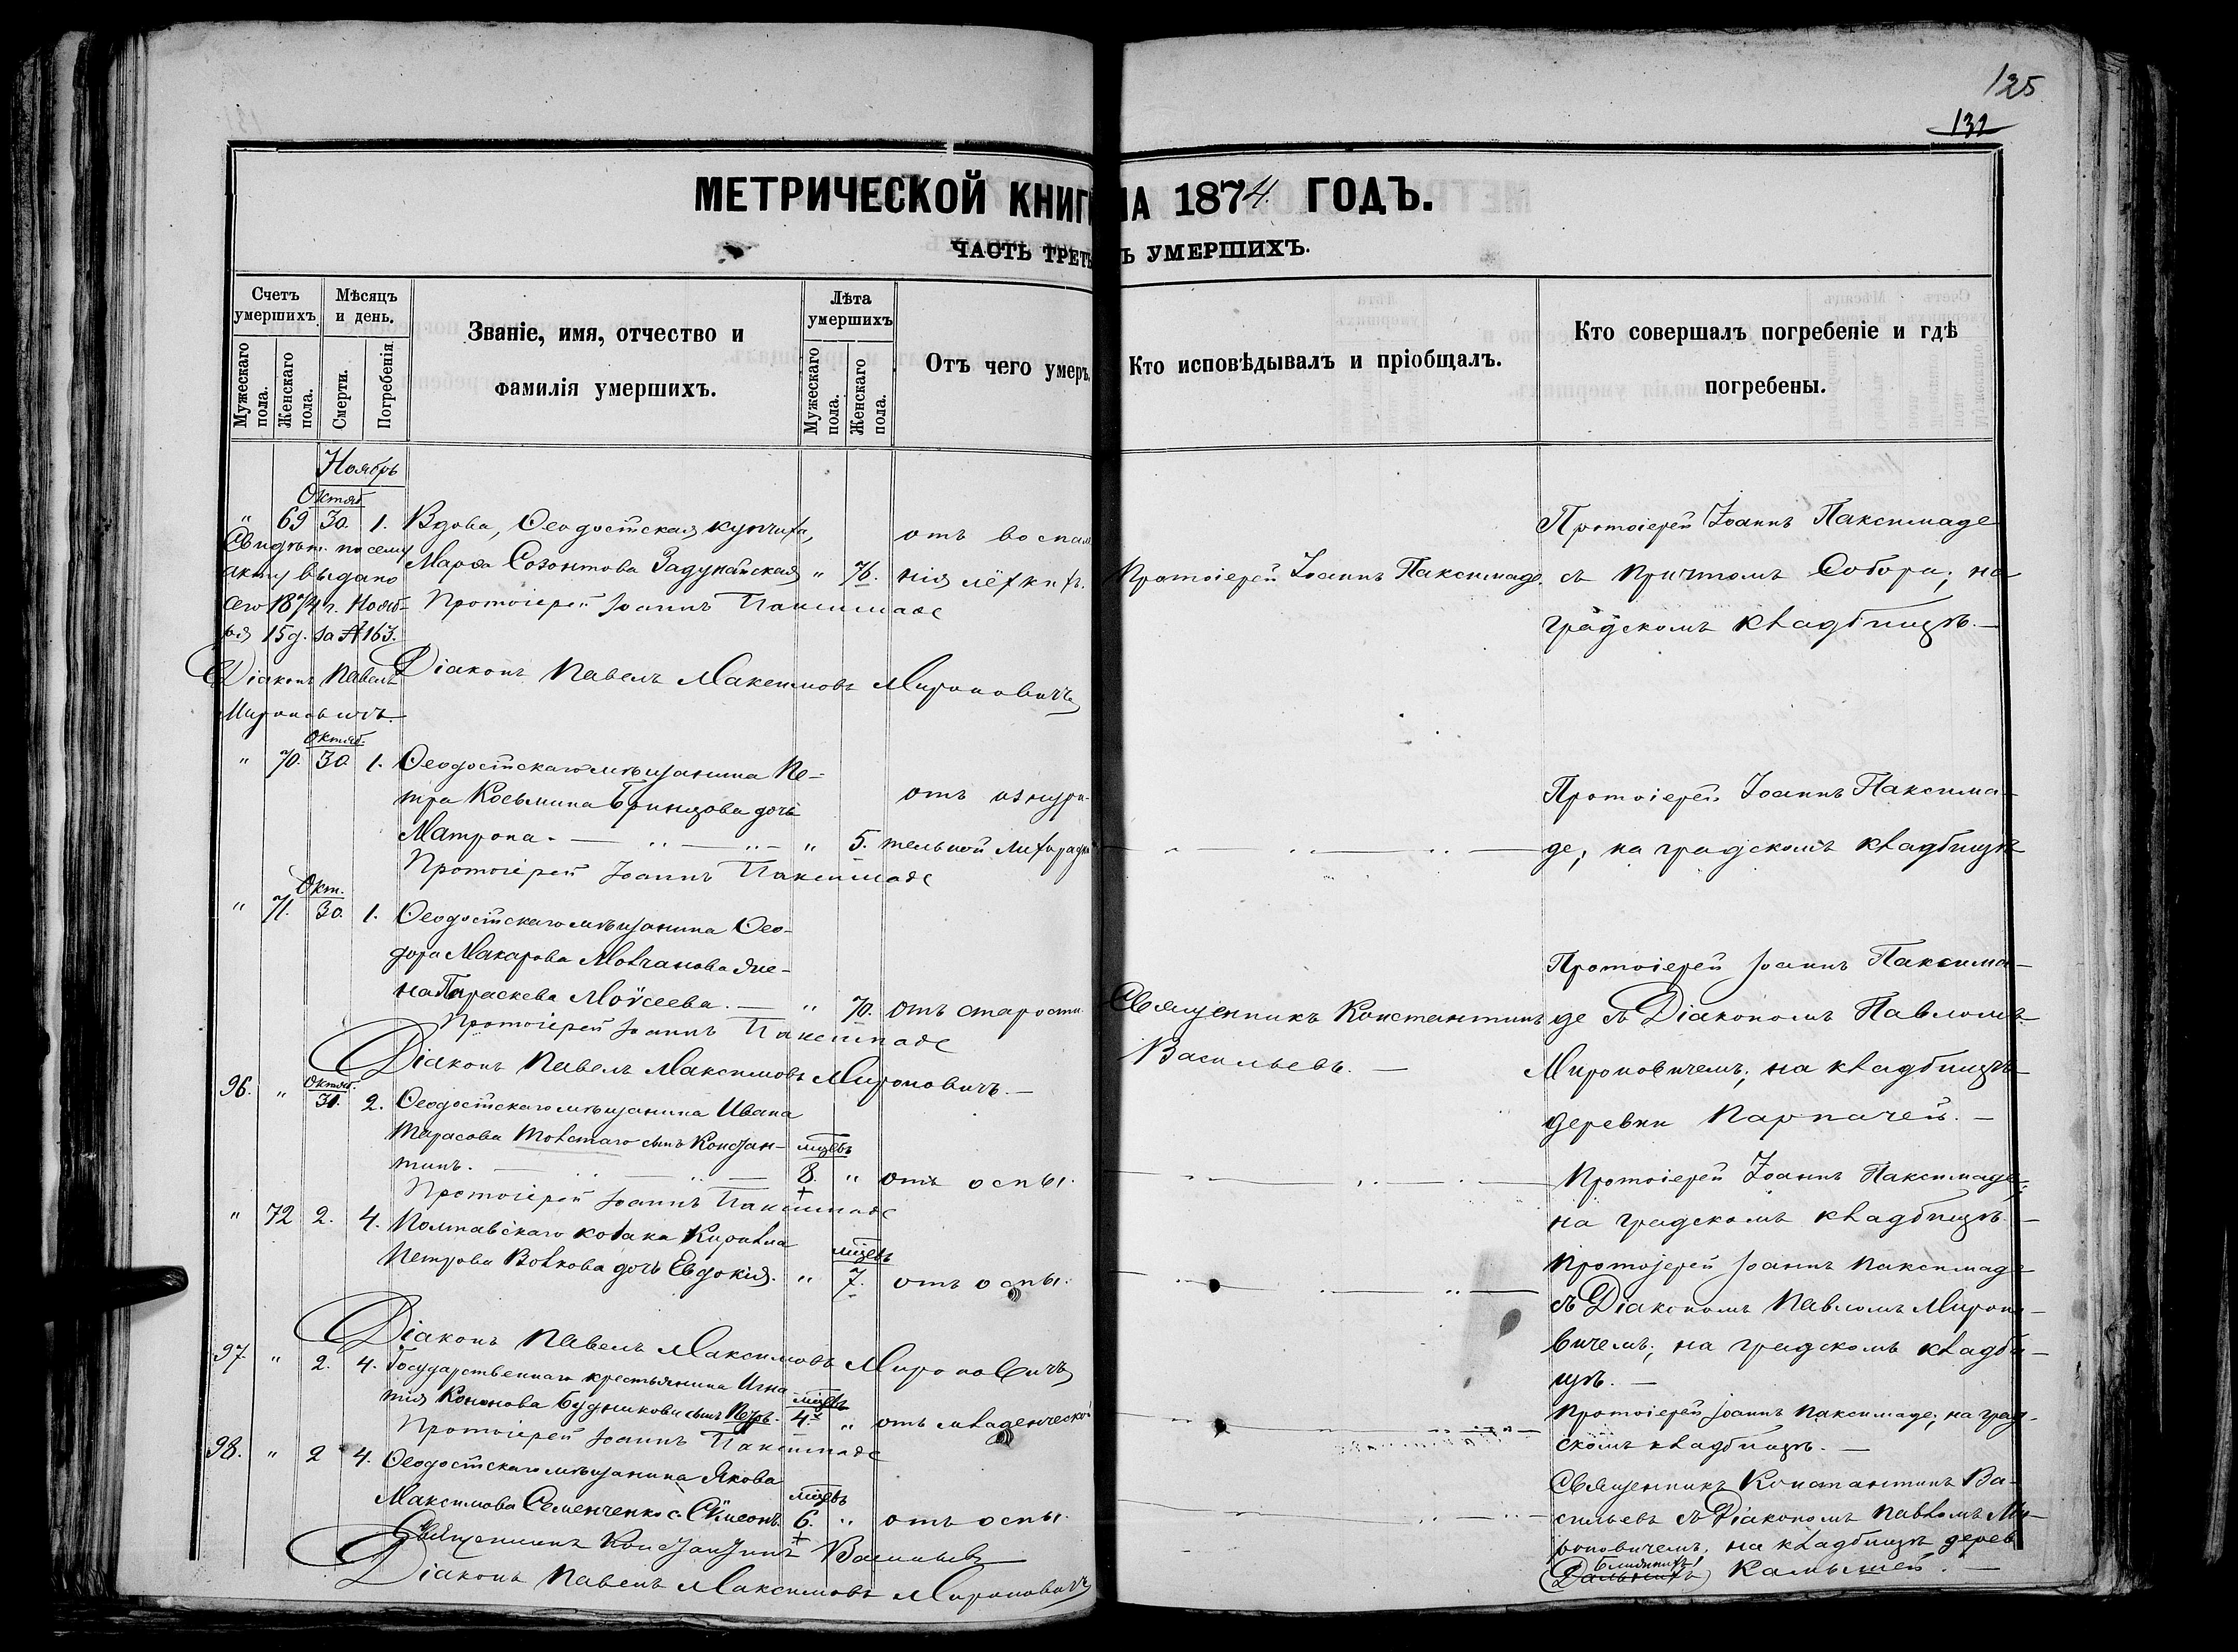 125
132
МЕТРИЧЕСКОЙ КНИГ НА 1874. ГОДЪ.
ЧАСТЬ ТРЕТЬ Ъ УМЕРШИХЪ.
Счетъ умершихъ.
Мужескаго пола.
Женскаго пола.
Мѣсяцъ и день.
Смерти.
Погребенія.
Званіе, имя, отчество и
фамилія умершихъ.
Лѣта умершихъ
Мужескаго пола.
Женскаго пола.
Отъ чего умеръ.
Кто исповѣдывалъ и пріобщалъ.
Кто совершалъ погребеніе и гдѣ
погребены.
Ноябрь
Октяб.
" 69 30. 1. Вдова, Ѳеодосійская купчиха, отъ воспал
Марѳа Созонтова Задунайская " 76. нія лёгкихъ.
Свидѣт. по сему
акту выдано
сего 1874 г. Нояб-
ря 15 д. за № 163.
Діаконъ Павелъ
Мироновичъ.
Протоіерей Іоаннъ Паксимаде
Діаконъ Павелъ Максимовъ Мироновичъ
Протоіерей Іоаннъ Паксимаде.
Протоіерей Іоаннъ Паксимаде
съ причтомъ Собора; на
градскомъ кладбищѣ. —
Октяб.
" 70. 30. 1. Ѳеодосійскаго мѣщанина Пе-
тра Косьмина дочь отъ изнури-
Матрона. — " — " — " 5. тельной лихорадки
Протоіерей Іоаннъ Паксимаде
Протоіерей Іоаннъ Паксима-
де, на градскомъ кладбищѣ
Окт.
" 71. 30. 1. Ѳеодосійскаго мѣщанина Ѳео-
дора Макарова Молчанова же-
на Параскева Моѵсеева. — " 70. отъ старости.
Протоіерей Іоаннъ Паксимаде
Діаконъ Павелъ Максимовъ Мироновичъ. —
Священникъ Константинъ
Васильевъ. —
Протоіерей Іоаннъ Паксима-
де съ Діакономъ Павломъ
Мироновичемъ; на кладбищѣ
деревни Парпачей. —
Октяб.
96. " 31. 2. Ѳеодосійскаго мѣщанина Ивана
Тарасова Толстаго сынъ Констан- мцевъ
тинъ. — " — " — 8. " отъ оспы.
Протоіерей Іоаннъ Паксимаде
Протоіерей Іоаннъ Паксимаде;
на градскомъ кладбищѣ. —
" 72 2. 4. Полтавскаго козака Кирилла
Петрова Волкова дочь Евдокія. " мцевъ 7. отъ оспы.
Діаконъ Павелъ Максимовъ Мироновичъ
Протоіерей Іоаннъ Паксимаде
съ Діакономъ Павломъ Мироно-
вичемъ; на градскомъ кладби-
щѣ. —
97. " 2. 4. Государственнаго крестьянина Игна-
тія Кононова Будникова сынъ Петръ. мцевъ 4. " отъ младенческой
Протоіерей Іоаннъ Паксимаде
Протоіерей Іоаннъ Паксимаде; на град-
скомъ кладбищѣ. —
98. " 2 4. Ѳеодосійскаго мѣщанина Якова
Максимова Семенченко с. Сѵмеонъ. мцевъ 6. " отъ оспы.
Священникъ Константинъ Васильевъ
Діаконъ Павелъ Максимовъ Мироновичъ
Священникъ Константинъ Ва-
сильевъ съ Діакономъ Павломъ Ми-
роновичемъ, на кладбищѣ дерев
Ближнихъ
Дальнихъ Камышей. —